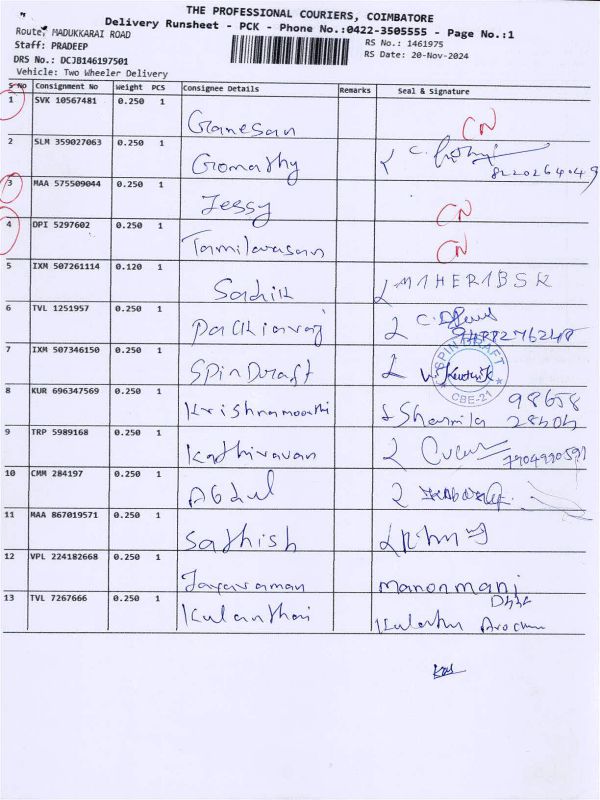 THE PROFESSIONAL COURIERS, COIMBATORE
Delivery Runsheet - PCK - Phone No.:0422-3505555 - Page No.:1
Route: MADUKKARAI ROAD
RS No.: 1461975
Staff: PRADEEP
RS Date: 20-Nov-2024
DRS No.: DCJB146197501
Vehicle: Two Wheeler Delivery
S No Consignment No Weight PCS Consignee Details Remarks Seal & Signature
1 SVK 10567481 0.250 1 Ganesan CN
2 SLM 359027063 0.250 1 Gomathy 8220264049
3 MAA 575509044 0.250 1 Jessy CN
4 DPI 5297602 0.250 1 Tamilarasan CN
5 IXM 507261114 0.120 1 Sadik
6 TVL 1251957 0.250 1 Packiaraj
7 IXM 507346150 0.250 1 Spin Draft
SPIN DRAFT
CBE-21
8 KUR 696347569 0.250 1 Krishnamoorthi Sharmila 98658
9 TRP 5989168 0.250 1 Kathiravan
10 CMM 284197 0.250 1 Abdul
11 MAA 867019571 0.250 1 Sathish
12 VPL 224182668 0.250 1 Jayaraman Manonmani
13 TVL 7267666 0.250 1 Kulanthai